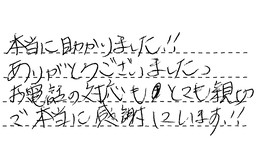 本当に助かりました!!
ありがとうございました。
お電話の対応もとても親切
で本当に感謝しています!!